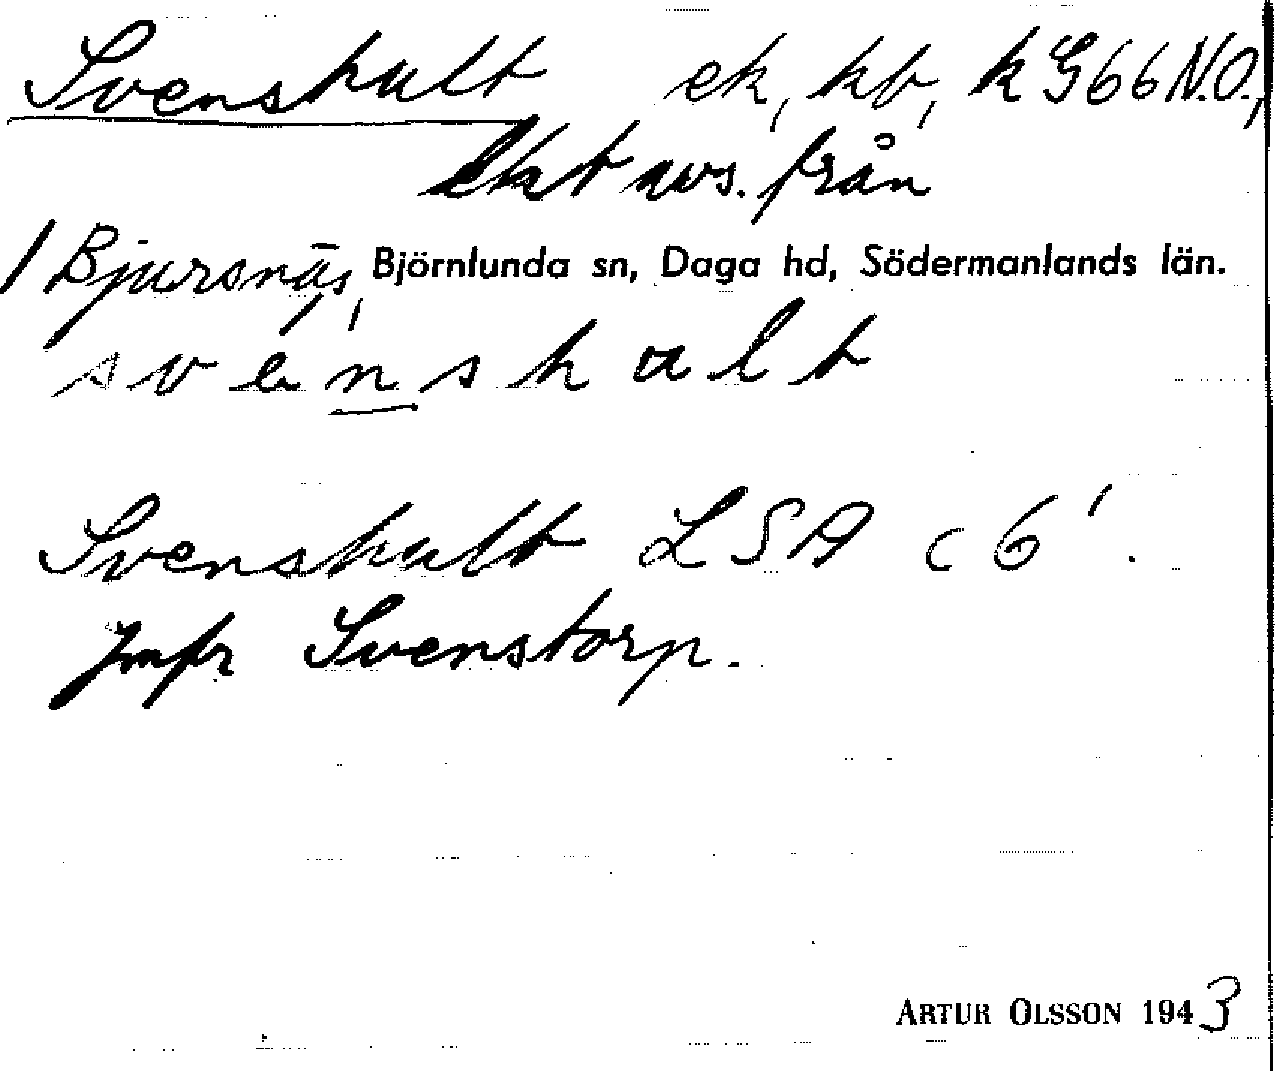 Svenshult ek, kb, k G66 N.O.,
lht avs. från
/ Bjursnäs, Björnlunda sn, Daga hd, Södermanlands län.
s v e n s h u l t
Svenshult LSA c 6'.
Jmfr Svenstorp.
ARTUR OLSSON 1943